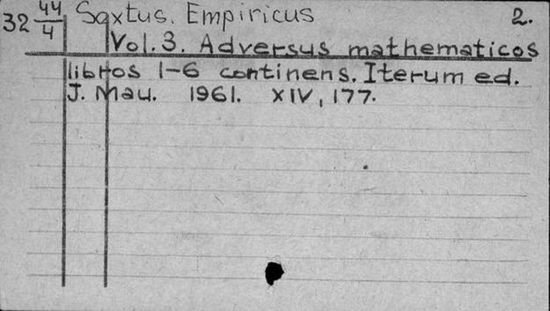 32 44/4 Saxtus. Empiricus 2.
Vol. 3. Adversus mathematicos
libros 1-6 continens. Iterum ed.
J. Mau. 1961. XIV, 177.